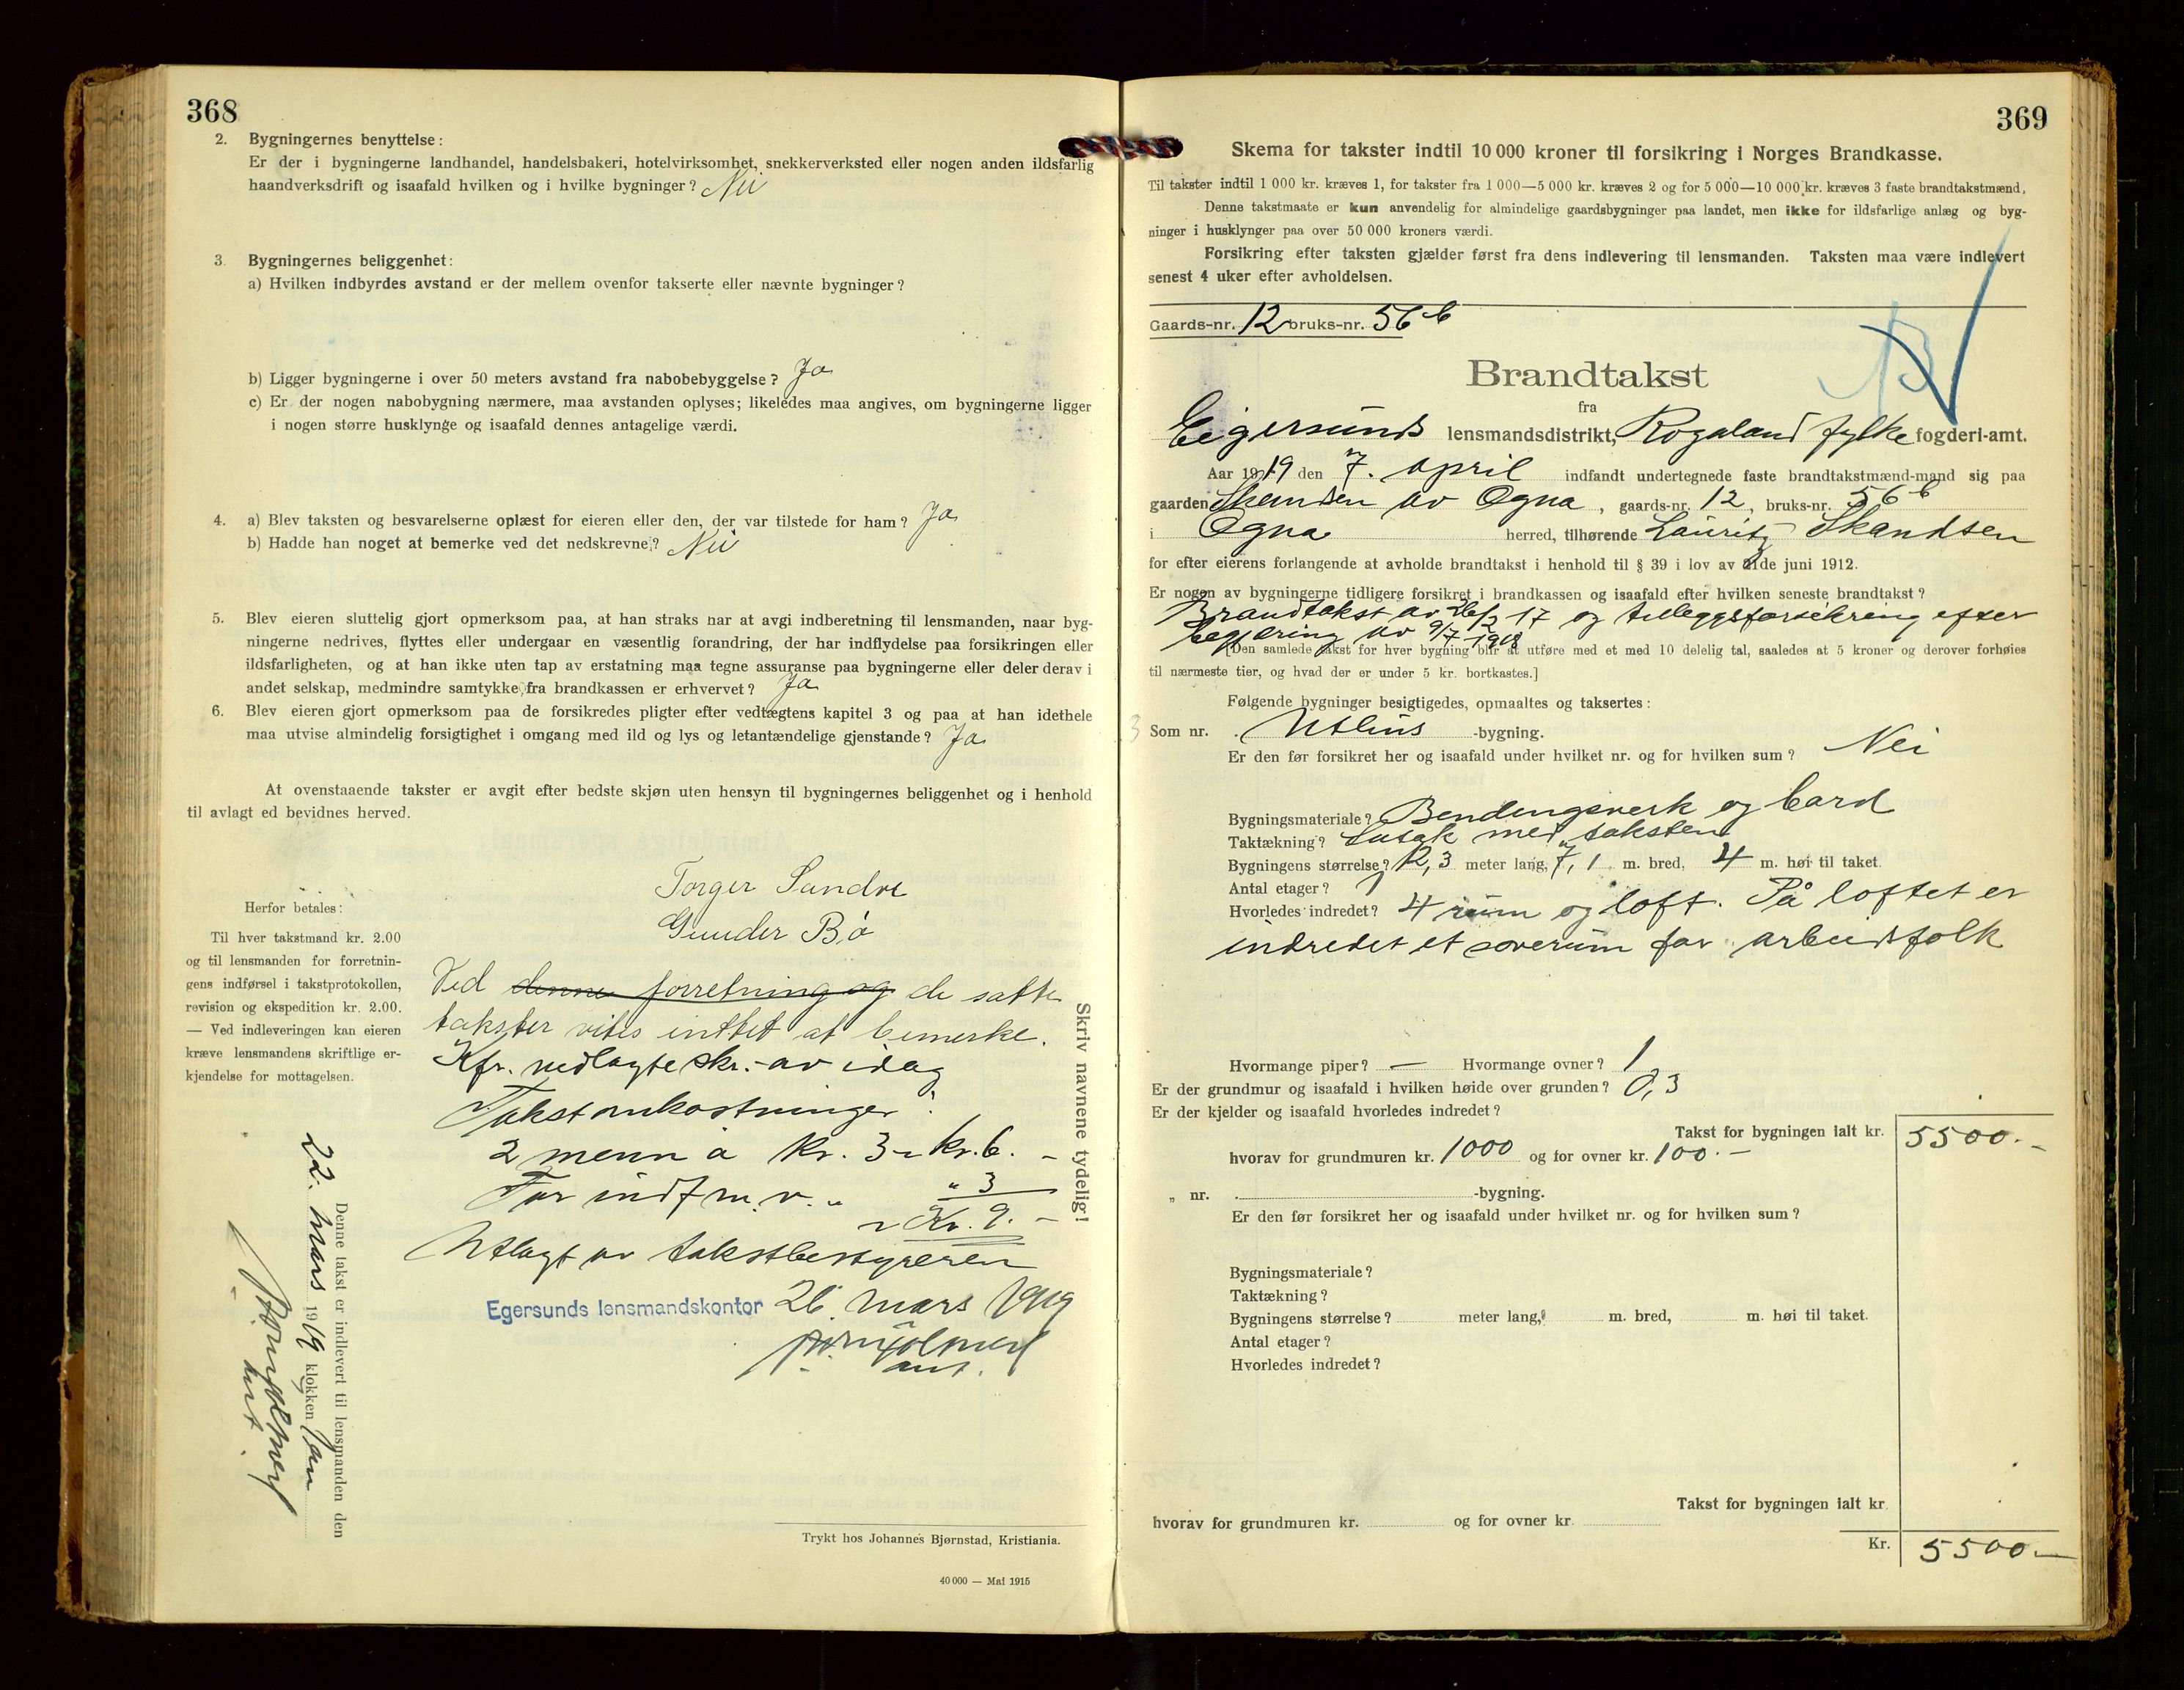 368
2. Bygningernes benyttelse:
Er der i bygningerne landhandel, handelsbakeri, hotelvirksomhet, snekkerverksted eller nogen anden ildsfarlig
haandverksdrift og isaafald hvilken og i hvilke bygninger? Nei
3. Bygningernes beliggenhet:
a) Hvilken indbyrdes avstand er der mellem ovenfor takserte eller nævnte bygninger?
b) Ligger bygningerne i over 50 meters avstand fra nabobebyggelse? Ja
c) Er der nogen nabobygning nærmere, maa avstanden oplyses; likeledes maa angives, om bygningerne ligger
i nogen større husklynge og isaafald dennes antagelige værdi.
4. a) Blev taksten og besvarelserne oplæst for eieren eller den, der var tilstede for ham? Ja
b) Hadde han noget at bemerke ved det nedskrevne? Nei
5. Blev eieren sluttelig gjort opmerksom paa, at han straks har at avgi indberetning til lensmanden, naar byg-
ningerne nedrives, flyttes eller undergaar en væsentlig forandring, der har indflydelse paa forsikringen eller
ildsfarligheten, og at han ikke uten tap av erstatning maa tegne assuranse paa bygningerne eller deler derav i
andet selskap, medmindre samtykke fra brandkassen er erhvervet? Ja
6. Blev eieren gjort opmerksom paa de forsikredes pligter efter vedtægtens kapitel 3 og paa at han idethele
maa utvise almindelig forsigtighet i omgang med ild og lys og letantændelige gjenstande? Ja
At ovenstaaende takster er avgit efter bedste skjøn uten hensyn til bygningernes beliggenhet og i henhold
til avlagt ed bevidnes herved.
Torger Sandve
Gunder Bø
Herfor betales:
Til hver takstmand kr. 2.00
og til lensmanden for forretnin-
gens indførsel i takstprotokollen,
revision og ekspedition kr. 2.00.
— Ved indleveringen kan eieren
kræve lensmandens skriftlige er-
kjendelse for mottagelsen.
Ved denne forretning og de satte
takster vites inttet at bemerke.
Kfr. vedlagte skr. av idag
Takstomkostninger:
2 menn à kr. 3 - kr. 6. -
For indf m. v. - " 3
- Kr. 9. -
Utlagt av takstbestyreren
Egersunds lensmandskontor 26 mars 1919
ass.
Skriv navnene tydelig!
Denne takst er indlevert til lensmanden den
22. mars 1919 klokken
Trykt hos Johannes Bjørnstad, Kristiania.
40 000 — Mai 1915
369
Skema for takster indtil 10 000 kroner til forsikring i Norges Brandkasse.
Til takster indtil 1 000 kr. kræves 1, for takster fra 1 000—5 000 kr. kræves 2 og for 5 000—10 000 kr. kræves 3 faste brandtakstmænd,
Denne takstmaate er kun anvendelig for almindelige gaardsbygninger paa landet, men ikke for ildsfarlige anlæg og byg-
ninger i husklynger paa over 50 000 kroners værdi.
Forsikring efter taksten gjælder først fra dens indlevering til lensmanden. Taksten maa være indlevert
senest 4 uker efter avholdelsen.
Gaards-nr. 12 bruks-nr. 56 b
Brandtakst
fra
Eigersunds lensmandsdistrikt, Rogaland fylke fogderi-amt.
Aar 1919 den 7. april indfandt undertegnede faste brandtakstmænd-mand sig paa
gaarden Skandsen av Ogna, gaards-nr. 12, bruks-nr. 56 b
i Ogna herred, tilhørende Lauritz Skandsen
for efter eierens forlangende at avholde brandtakst i henhold til § 39 i lov av 21de juni 1912.
Er nogen av bygningerne tidligere forsikret i brandkassen og isaafald efter hvilken seneste brandtakst?
Brandtakst av 26/2 17 og tilleggsforsikring efter
begjæring av 9/7 1918
[Den samlede takst for hver bygning blir at utføre med et med 10 delelig tal, saaledes at 5 kroner og derover forhøies
til nærmeste tier, og hvad der er under 5 kr. bortkastes.]
Følgende bygninger besigtigedes, opmaaltes og taksertes:
3 Som nr. Uthus -bygning.
Er den før forsikret her og isaafald under hvilket nr. og for hvilken sum? Nei
Bygningsmateriale? Bendingsverk og bord
Taktækning? Sutak med taksten
Bygningens størrelse? 12,3 meter lang, 7,1 m. bred, 4 m. høi til taket.
Antal etager? 1
Hvorledes indredet? 4 rum og loft. På loftet er
indredet et soverum for arbeidsfolk
Hvormange piper? — Hvormange ovner? 1
Er der grundmur og isaafald i hvilken høide over grunden? 0,3
Er der kjelder og isaafald hvorledes indredet?
Takst for bygningen ialt kr. 5500.-
hvorav for grundmuren kr. 1000 og for ovner kr. 100.-
„ nr. -bygning.
Er den før forsikret her og isaafald under hvilket nr. og for hvilken sum?
Bygningsmateriale?
Taktækning?
Bygningens størrelse? meter lang, m. bred, m. høi til taket.
Antal etager?
Hvorledes indredet?
Takst for bygningen ialt kr.
hvorav for grundmuren kr. og for ovner kr.
Kr. 5500-